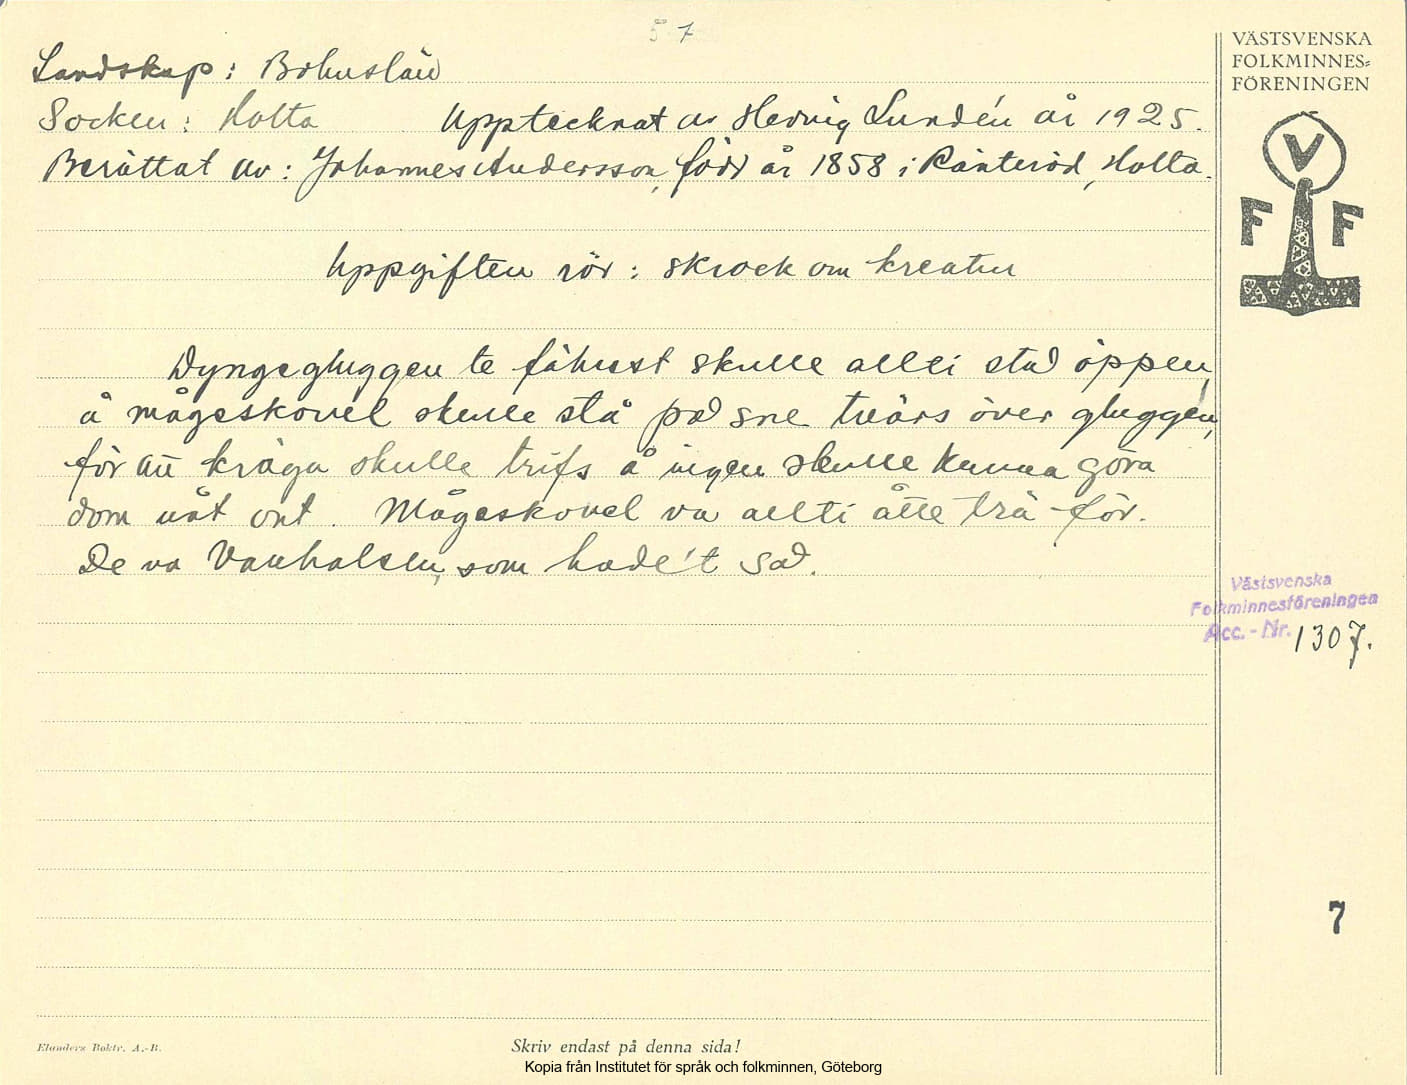 57
Landskap: Bohuslän
Socken: Holta Upptecknat av Hedvig Lundén år 1925.
Berättat av: Johannes Andersson, född år 1858 i Ränteröd, Holta.
Uppgiften rör: skrock om kreatur
Dyngegluggen te fähuset skulle allti stå öppen,
å mågeskovel skulle stå på sne tvärs över gluggen,
för att kräga skulle trifs å ingen skulle kunna göra
dom nåt ont. Mågeskovel va allti åtte trä för.
De va Vanhalsen, som hade't sa.
VÄSTSVENSKA
FOLKMINNES=
FÖRENINGEN
V
F F
Västsvenska
Folkminnesföreningen
Acc.-Nr. 1307.
7
Elanders Boktr. A.-B.
Skriv endast på denna sida!
Kopia från Institutet för språk och folkminnen, Göteborg